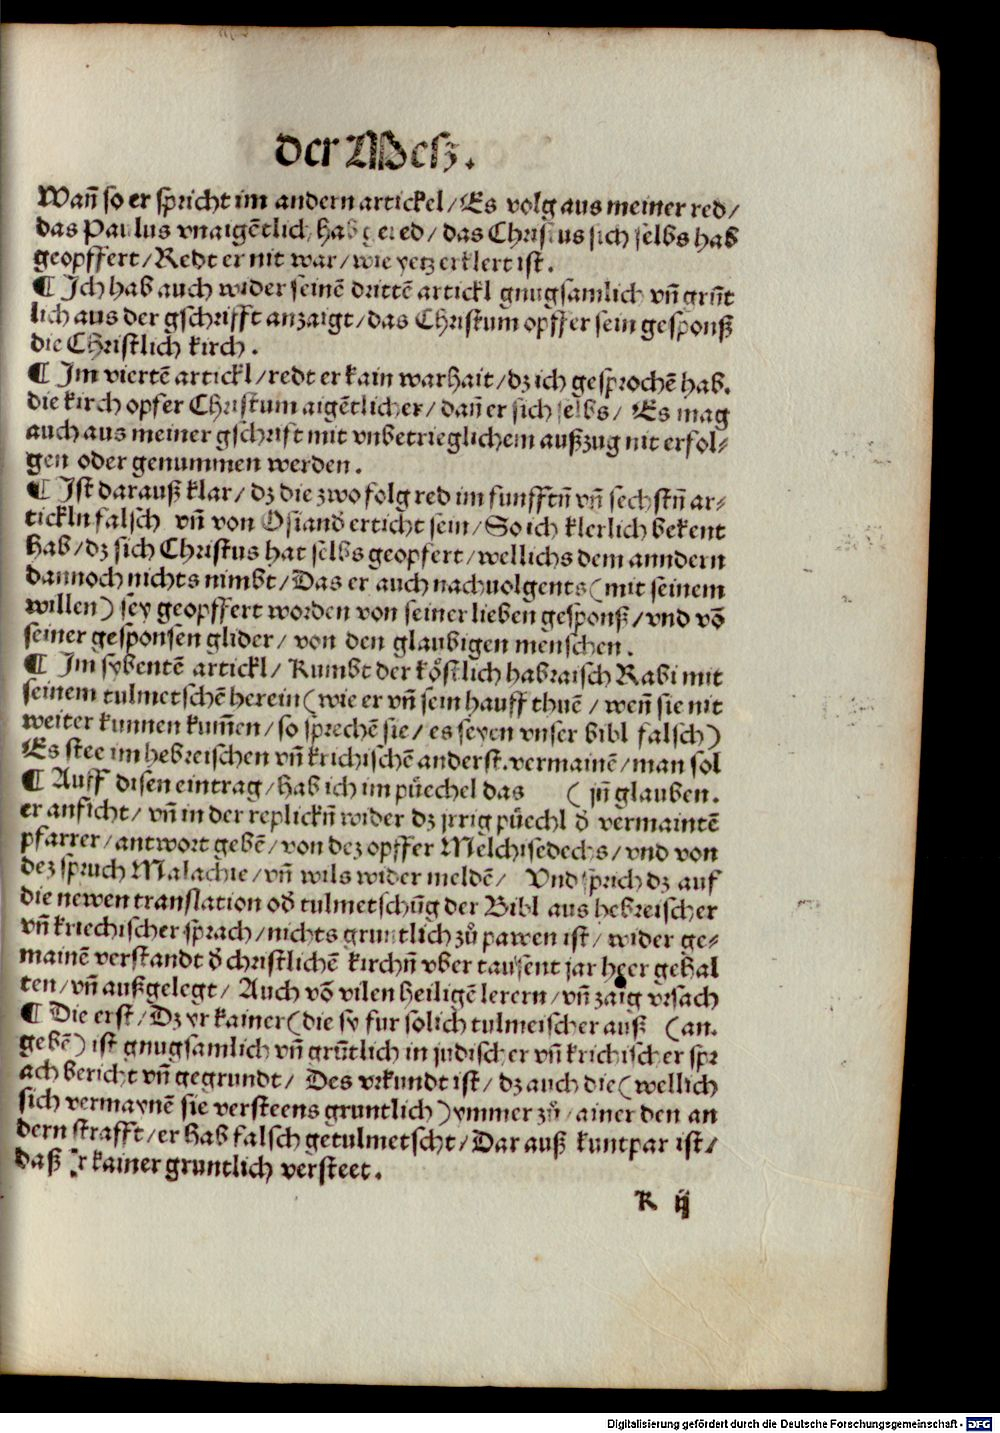 der Mesz.
Wañ so er spricht im andern artickel/ Es volg aus meiner red/
das Paulus vnaigẽtlich hab gered/ das Christus sich selbs hab
geopffert/ Redt er nit war/ wie yetz erklert ist.
¶ Ich hab auch wider seinẽ drittẽ artickl gnugsamlich vñ grũt
lich aus der gschrifft anzaigt/ das Christum opffer sein gesponß
die Christlich kirch.
¶ Im viertẽ artickl/ redt er kain warhait/ dz ich gesprochẽ hab.
die kirch opfer Christum aigẽtlicher/ dañ er sich selbs/ Es mag
auch aus meiner gschrift mit vnbetrieglichem außzug nit erfol-
gen oder genummen werden.
¶ Ist darauß klar/ dz die zwo folg red im funfftñ vñ sechstñ ar-
tickln falsch vñ von Osiand̕ erticht sein/ So ich klerlich bekent
hab/ dz sich Christus hat selbs geopfert/ wellichs dem anndern
dannoch nichts nimbt/ Das er auch nachuolgents (mit seinem
willen) sey geopffert worden von seiner lieben gesponß/ vnd võ
seiner gesponsen glider/ von den glaubigen menschen.
¶ Im sybentẽ artickl/ Kumbt der kőstlich habraisch Rabi mit
seinem tulmetschẽ herein (wie er vñ sein hauff thuẽ/ weñ sie nit
weiter kunnen kum̃en/ so sprechẽ sie/ es seyen vnser bibl falsch)
Es stee im hebreischen vñ krichischẽ anderst. vermainẽ/ man sol
¶ Auff disen eintrag/ hab ich im püechel das ( jñ glauben.
er anficht/ vñ in der replickñ wider dz jrrig püechl d̕ vermaintẽ
pfarrer/ antwort gebẽ/ von dez opffer Melchisedechs/ vnd von
dez spruch Malachie/ vñ wils wider meldẽ/ Vnd sprich dz auf
die newen translation od̕ tulmetschũg der Bibl aus hebreischer
vñ kriechischer sprach/ nichts gruntlich zů pawen ist/ wider ge-
mainẽ verstandt d̕ christlichẽ kirchñ vber tausent jar heer gehal
ten/ vñ außgelegt/ Auch võ vilen heiligẽ lerern/ vñ zaig vrsach
¶ Die erst/ Dz yr kainer (die sy fur solich tulmeischer auß (an.
gebẽ) ist gnugsamlich vñ grũtlich in judischer vñ krichischer spr
ach bericht vñ gegrundt/ Des vrkundt ist/ dz auch die (wellich
sich vermaynẽ sie versteens gruntlich) ymmer zů ainer den an
dern strafft/ er hab falsch getulmetscht/ Dar auß kuntpar ist/
daß yr kainer gruntlich versteet.
K ij
Digitalisierung gefördert durch die Deutsche Forschungsgemeinschaft - DFG